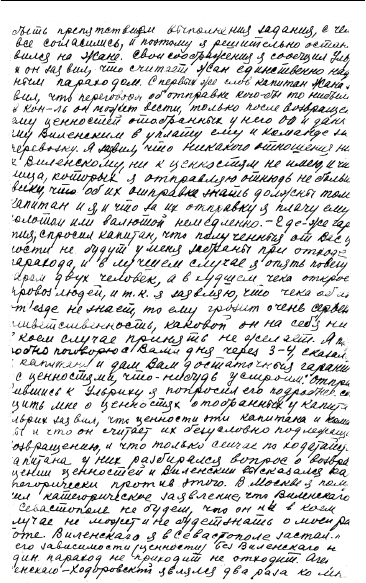 быть препятствием выполнения задания, с чем
все согласились, и поэтому я решительно остано
вился на Жане. Свои соображения я сообщил Уль
и он заявил, что считает Жан единственно
ным пароходом. С первых же слов капитан Жана
вил, что переговоры об отправке кого-бы то ни было
и кон-ды он может вести, только после возвраще
ему ценностей отобранных у него об и дан
ему Виленским в уплату ему и команде за
перевозку. Я заявил что никакого отношения ни
к Виленскому, ни к ценностям не имею, и что
лица, которых я отправляю отнюдь не
вики, что об их отправке знать должны только
капитан и я и что за их отправку я плачу ему
золотом или валютой немедленно. – Где-же гаран
тия, спросил капитан, что полученныя от вас
ности не будут у меня отобраны при отходе
парохода, и в лучшем случае я опять повезу
даром двух человек, а в худшем чека откроет
провоз людей, и т.к. я заявляю, что чека об их
отъезде не знает, то ему грозит очень серьезн
ответственность, каковой он на себя ни
в коем случае принять не желает. Я
поговорю с Вами дня через 3-4, сказал
я капитану и дам Вам достаточныя гаранти
с ценностями, что-нибудь устроим. Отпра
вившись к Ульрику я попросил его подробно со
щить мне о ценностях отобранных у капита
льрик заявил, что ценности эти капитана и коман
ды и что он считает их безусловно подлежащи
возвращению, и что только сейчас по ходатайству
капитана у них разбирался вопрос о возвра
щении ценностей и Виленский высказался ка
тегорически против этого. В Москве я
ил категорическое заявление, что Виленского
в Севастополе не будет, что он ни в коем
случае не может и не будет знать о моей ра
боте. Виленского я в Севастополе застал и
его зависимости (ценности) без Виленского ни
один пароход не приходит не отходит. Аген
ленскаго – Ходоровский являлся два раза ко мне